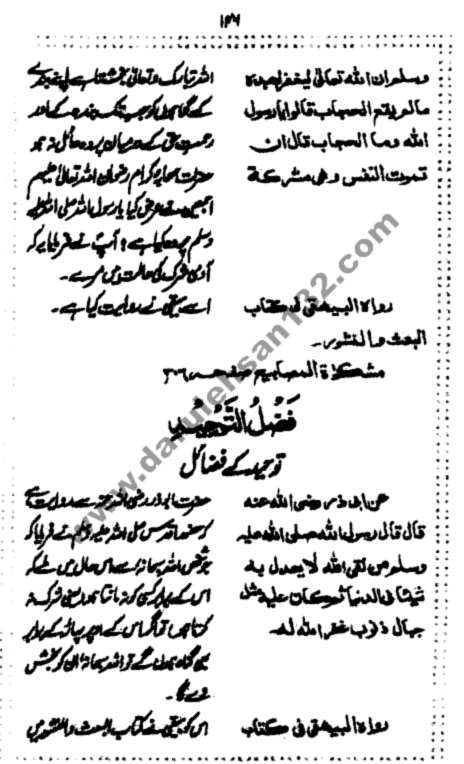 وسلم ان الله تعالى ليغفر لعبده
مالم يقع الحجاب قالوا يا رسول
الله وما الحجاب قال ان
تموت النفس وهى مشركة
رواه البيهقى فى كتاب
البعث والنشور۔
مشكوٰة المصابيح صفحہ
اللہ تبارک وتعالیٰ بخشتا ہے اپنے بندے
کے گناہوں کو جب تک بندے کے اور
رحمت حق کے درمیان پردہ حائل نہ ہو
حضرات صحابہ کرام رضوان اللہ تعالیٰ علیہم
اجمعین نے عرض کیا یا رسول اللہ صلی اللہ علیہ
وسلم پردہ کیا ہے؟ آپ نے فرمایا یہ کہ
آدمی شرک کی حالت میں مرے۔
اسے بیہقی نے روایت کیا ہے۔
فَضْلُ التَّوْحِيْدِ
توحید کے فضائل
عن ابى ذر رضى الله عنه
قال قال رسول الله صلى الله عليه
وسلم من لقى الله لا يعدل به
شيئا فى الدنيا ثم كان عليه مثل
جبال ذنوب غفر الله له۔
رواه البيهقى فى كتاب
حضرت ابوذر رضی اللہ عنہ سے روایت ہے
کہ حضور اقدس صلی اللہ علیہ وسلم نے فرمایا کہ
جو شخص اللہ سبحانہ سے اس حال میں ملے کہ
اس کے برابر کسی کو نہ مانتا ہو یعنی شرک نہ
کرتا ہو تو اگر اس کے اوپر پہاڑ کے برابر
بھی گناہ ہوں گے تو اللہ سبحانہ ان کو بخش
دے گا۔
اس کو بیہقی نے کتاب البعث والنشور میں
www.darulehsan132.com